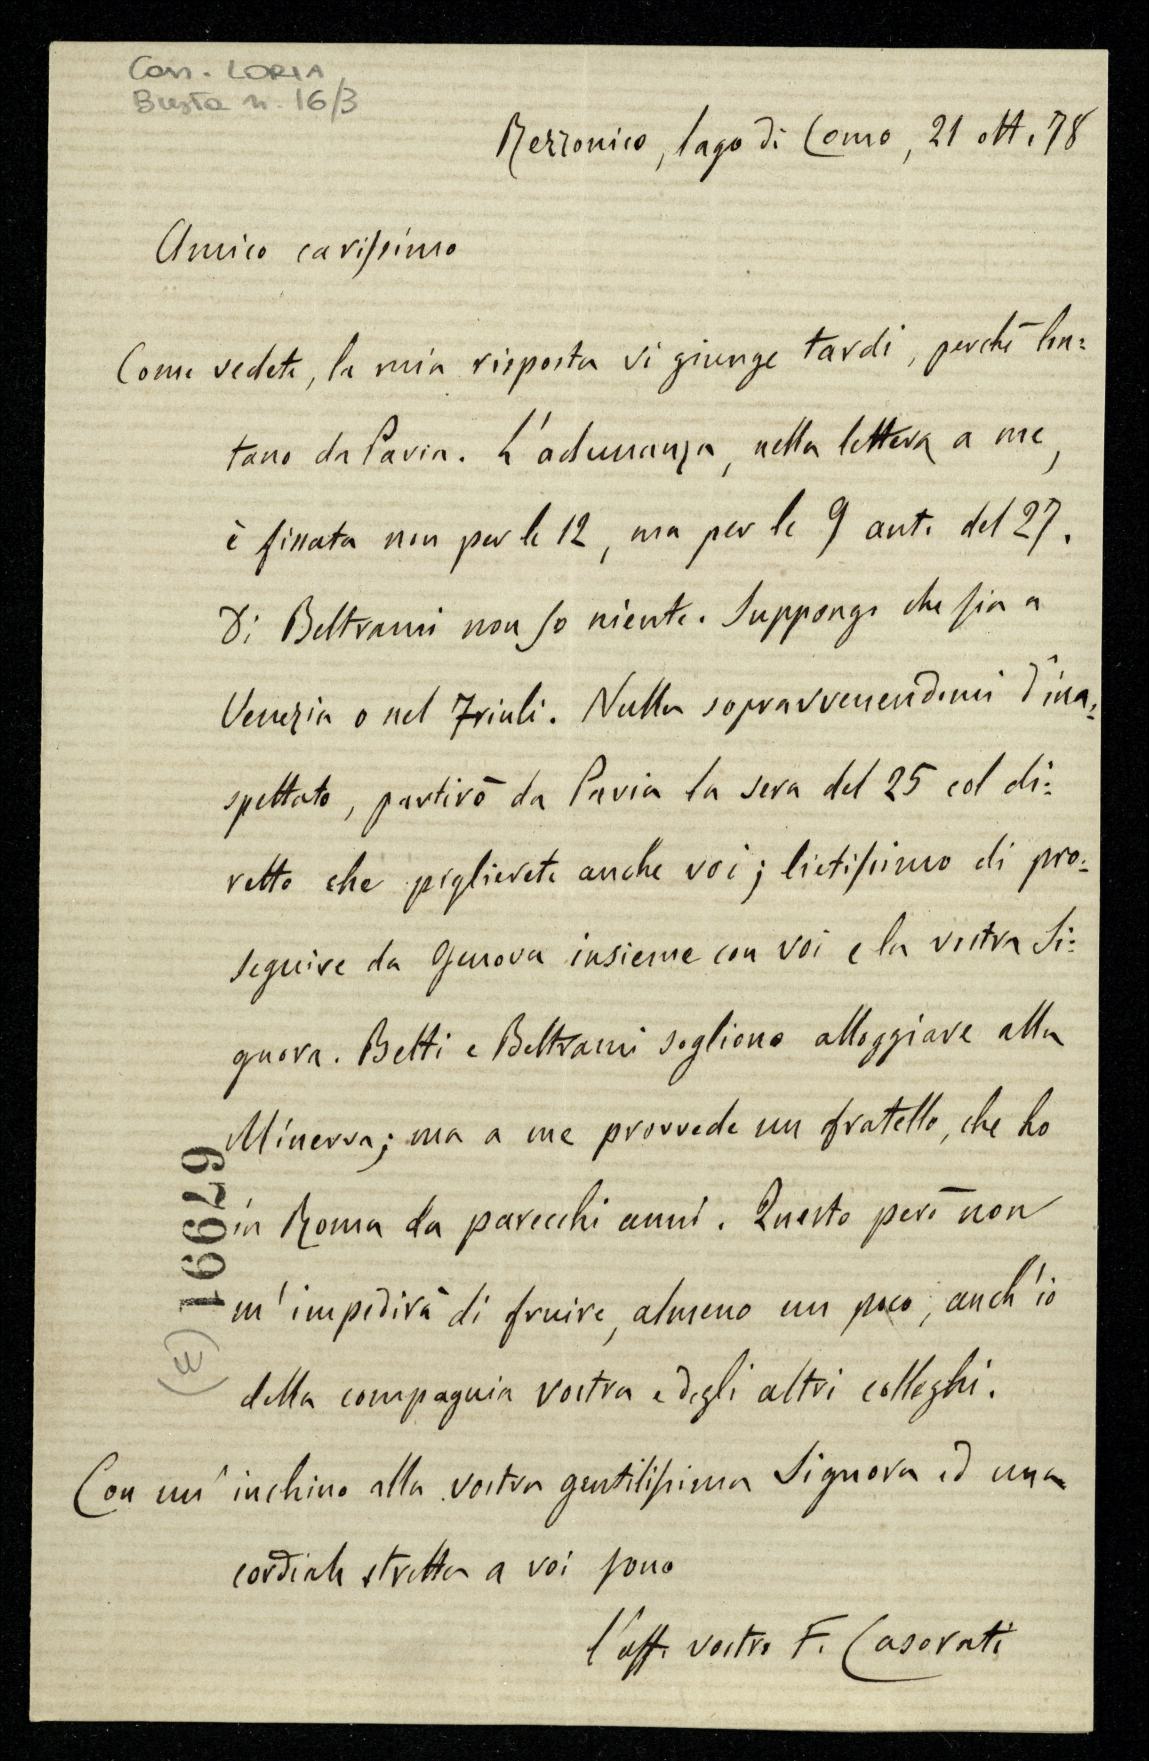 Corr. LORIA
Busta n. 16/3
Rezzonico, lago di Como, 21 ott. 78
Amico carissimo
Come vedete, la mia risposta vi giunge tardi, perchè lon=
tano da Pavia. L'adunanza, nella lettera a me,
è fissata non per le 12, ma per le 9 ant. del 27.
Di Beltrami non so niente. Suppongo che sia a
Venezia o nel Friuli. Nulla sopravvenendomi d'ina=
spettato, partirò da Pavia la sera del 25 col di=
retto che piglierete anche voi; lietissimo di pro=
seguire da Genova insieme con voi e la vostra Si=
gnora. Betti e Beltrami sogliono alloggiare alla
Minerva; ma a me provvede un fratello, che ho
in Roma da parecchi anni. Questo però non
m'impedirà di fruire, almeno un poco, anch'io
della compagnia vostra e degli altri colleghi.
Con un inchino alla vostra gentilissima Signora ed una
cordiale stretta a voi sono
l'aff. vostro F. Casorati
16679